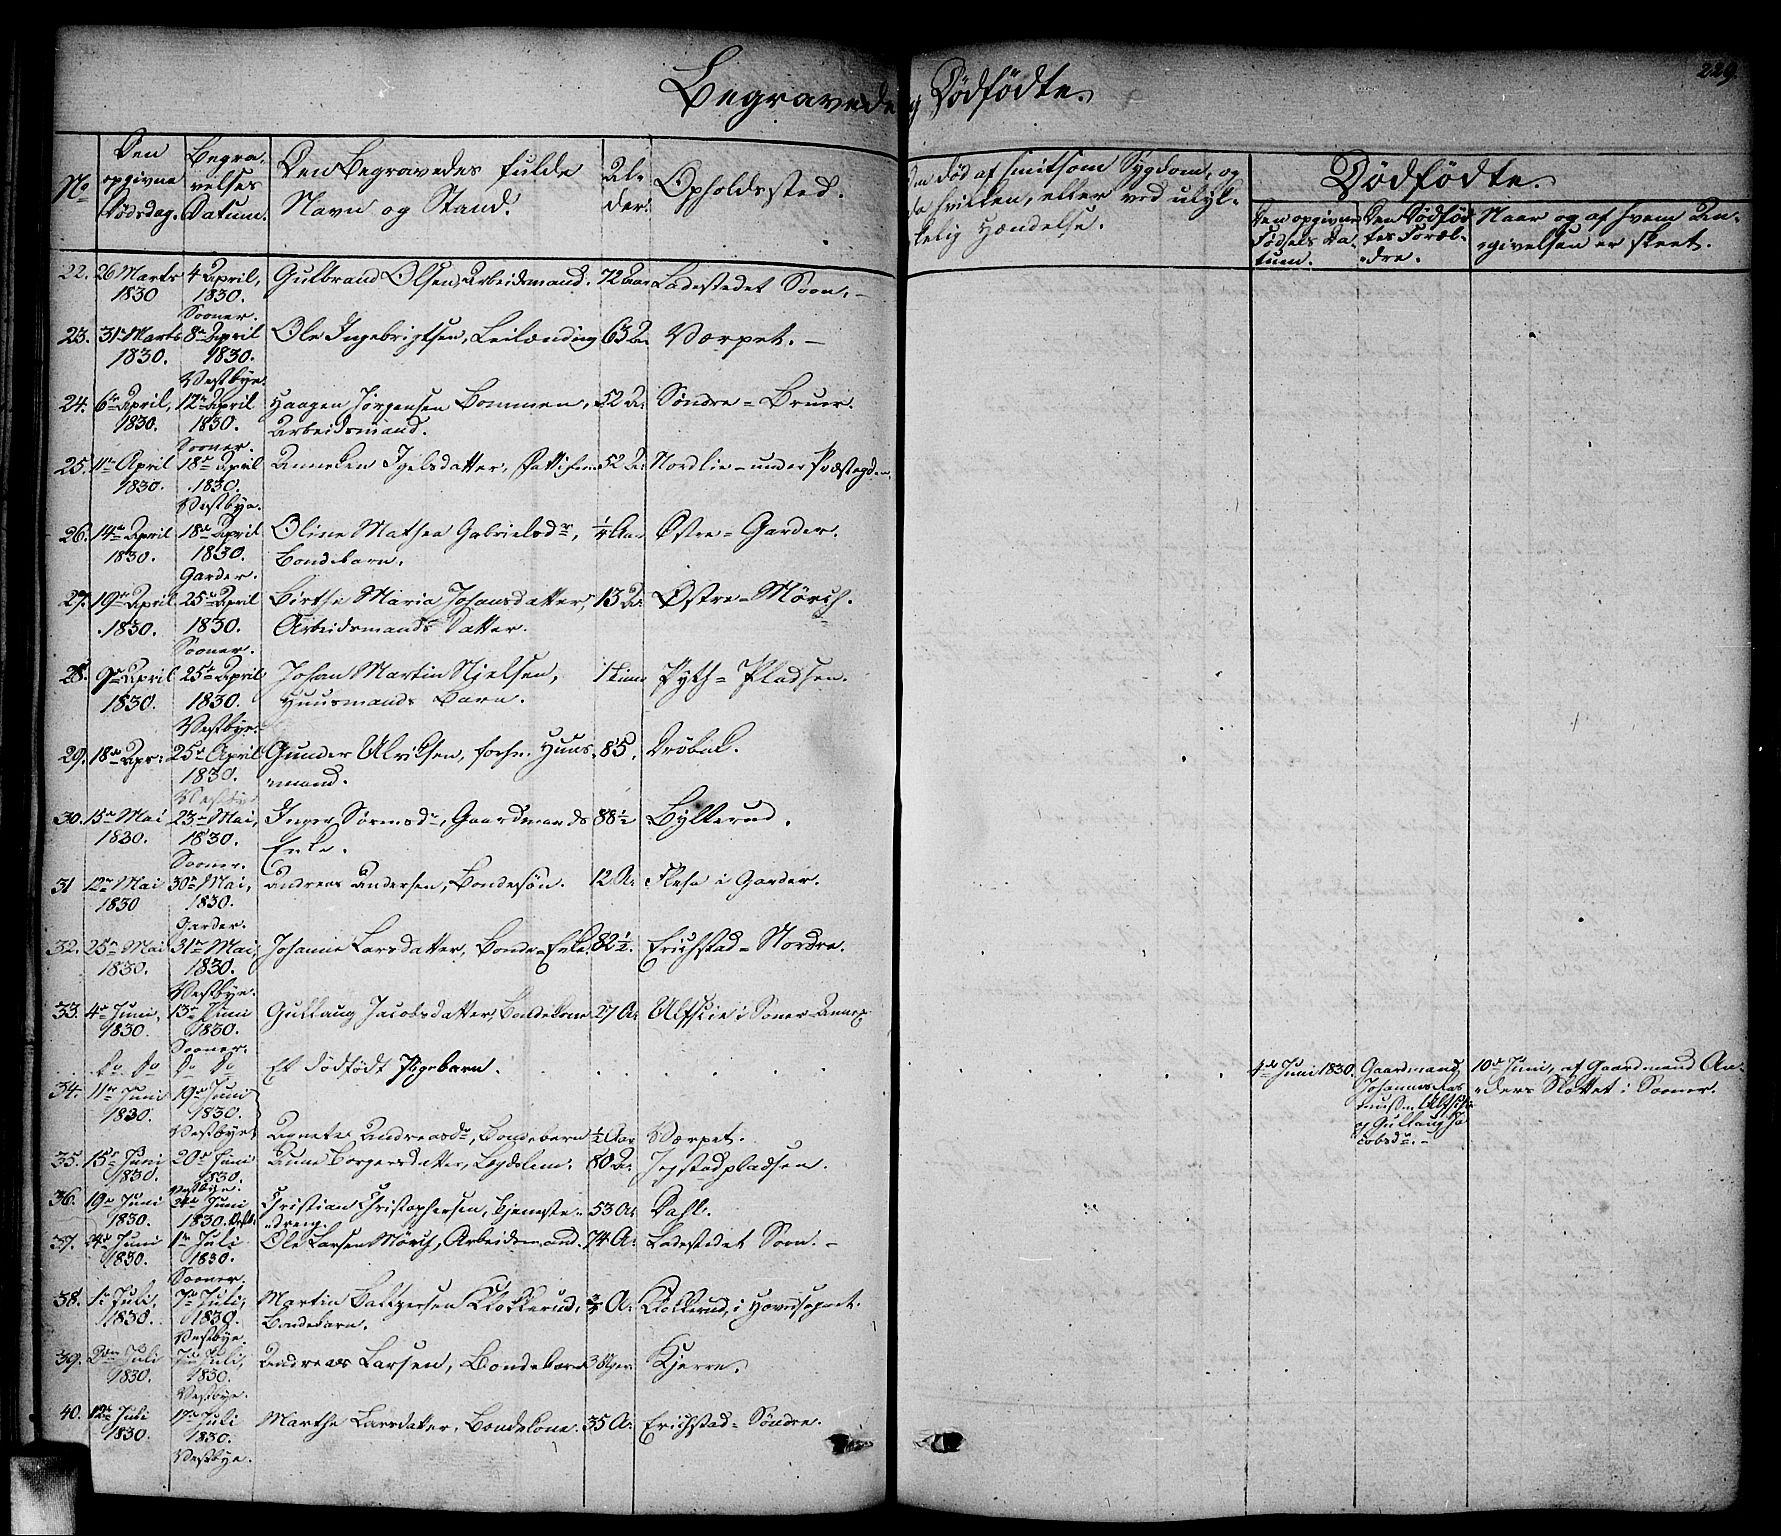 229.
Begravede og Dödfödte.
No
Den opgivne Dödsdag.
Begravelses Datum.
Den Begravedes fulde Navn og Stand.
Alder.
Opholdssted.
Om død af smitsom Sygdom, og da hvilken, eller ved ulykkelig Hændelse.
Dödfödte.
Den opgivne Fødsels Datum.
Den Dödfödtes Forældre.
Naar og af hvem Angivelsen er skeet.
22. 26 Marts 1830 4 April, 1830. Sooner. Gulbrand Olsen, Arbeidsmand. 72 Aar Ladestedet Soon. –
23. 31te Marts 1830. 8de April 1830. Vestbye. Ole Ingebrigtsen, Leilænding 63 A. Værpet. –
24. 6te April, 1830. 12te April 1830. Sooner. Haagen Jörgensen Bommen, Arbeidsmand. 52 A. Søndre = Bruer.
25. 11te April 1830. 18de April 1830. Vestbye. Anneken Igelsdatter, 52 A. Nordlie – under
26. 14de April 1830. 18de April 1830. Garder. Oline Mathea Gabrielsdr, Bondebarn. 1/4 Aar Østre = Garder.
27. 19de April 1830. 25de April 1830. Sooner. Birthe Maria Johansdatter, Arbeidsmands Datter. 13 A. Østre = Mörch.
28. 9de April 1830. 25de April 1830. Vestbye. Johan Martin Nielsen, Huusmands Barn. 1 time Pyth = Pladsen.
29. 18de Apr: 25de April 1830. Vestbye Gunder Ulriksen, forhn. Huusmand. 85. Dröbak.
30. 15de Mai 1830. 23de Mai, 1830. Sooner. Inger Sörensdr, Gaardmands Enke. 88 1/2 Bylterud.
31 12te Mai 1830 30te Mai, 1830. Garder. Andreas Andersen, Bondesön. 12 A. i Garder.
32. 25de Mai 1830. 31te Mai, 1830. Vestbye. Johanne Larsdatter, Bonde = Enke 82 1/2. Erichstad = Nordre.
33. 4de Juni, 1830. 13de Juni 1830. Sooner. Gullaug Jacobsdatter, Bondekone 27 A. i Soner Annex
Do Do Do Do Et dödfödt Pigebarn. 4de Juni 1830. Gaardmand Johannes og Gullaug Jacobsdr. – 10de Juni, af Gaardmand Anders Slottet i Sooner.
34. 11te Juni 1830. 19de Juni 1830. Vestbye. Agnete Andreasdr, Bondebarn 1/2 Aar Værpet.
35. 15de Juni 1830. 20de Juni 1830. Vestbye. Anne Borgersdatter, Lægdslem. 80 A. Jogstadpladsen.
36. 19de Juni 1830. Juni 1830. Vestb. Christian Christophersen, tjenestedreng. 53 A. Dahl.
37. 24de Juni 1830. 1te Juli 1830. Sooner. Ole Larsen Mörch, Arbeidsmand. 74 A. Ladestedet Soon. –
38. 1te Juli, 1830. 7de Juli, 1830. Vestbye. Martin Baltzersen Klokkerud, Bondebarn. 3/4 A. Klokkerud, i Hovedsognet.
39. Juli 1830. Juli, 1830. Vestbye. Andreas Larsen, Bondebarn 3 Uger Kjerre.
40. 12te Juli 1830. 17de Juli 1830. Vestbye. Marthe Larsdatter, Bondekone. 35 A. Erichstad = Søndre.